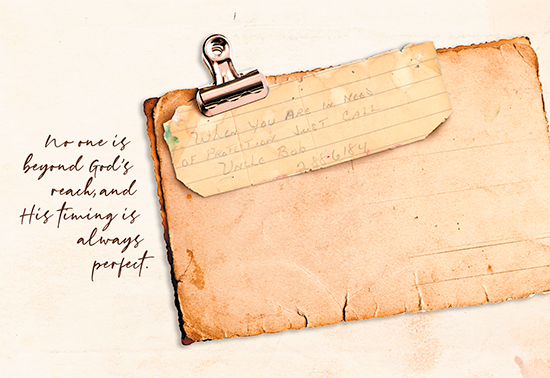 No one is
beyond God's
reach, and
His timing is
always
perfect.
When You Are in Need
of Protection Just Call
Uncle Bob
288-6184